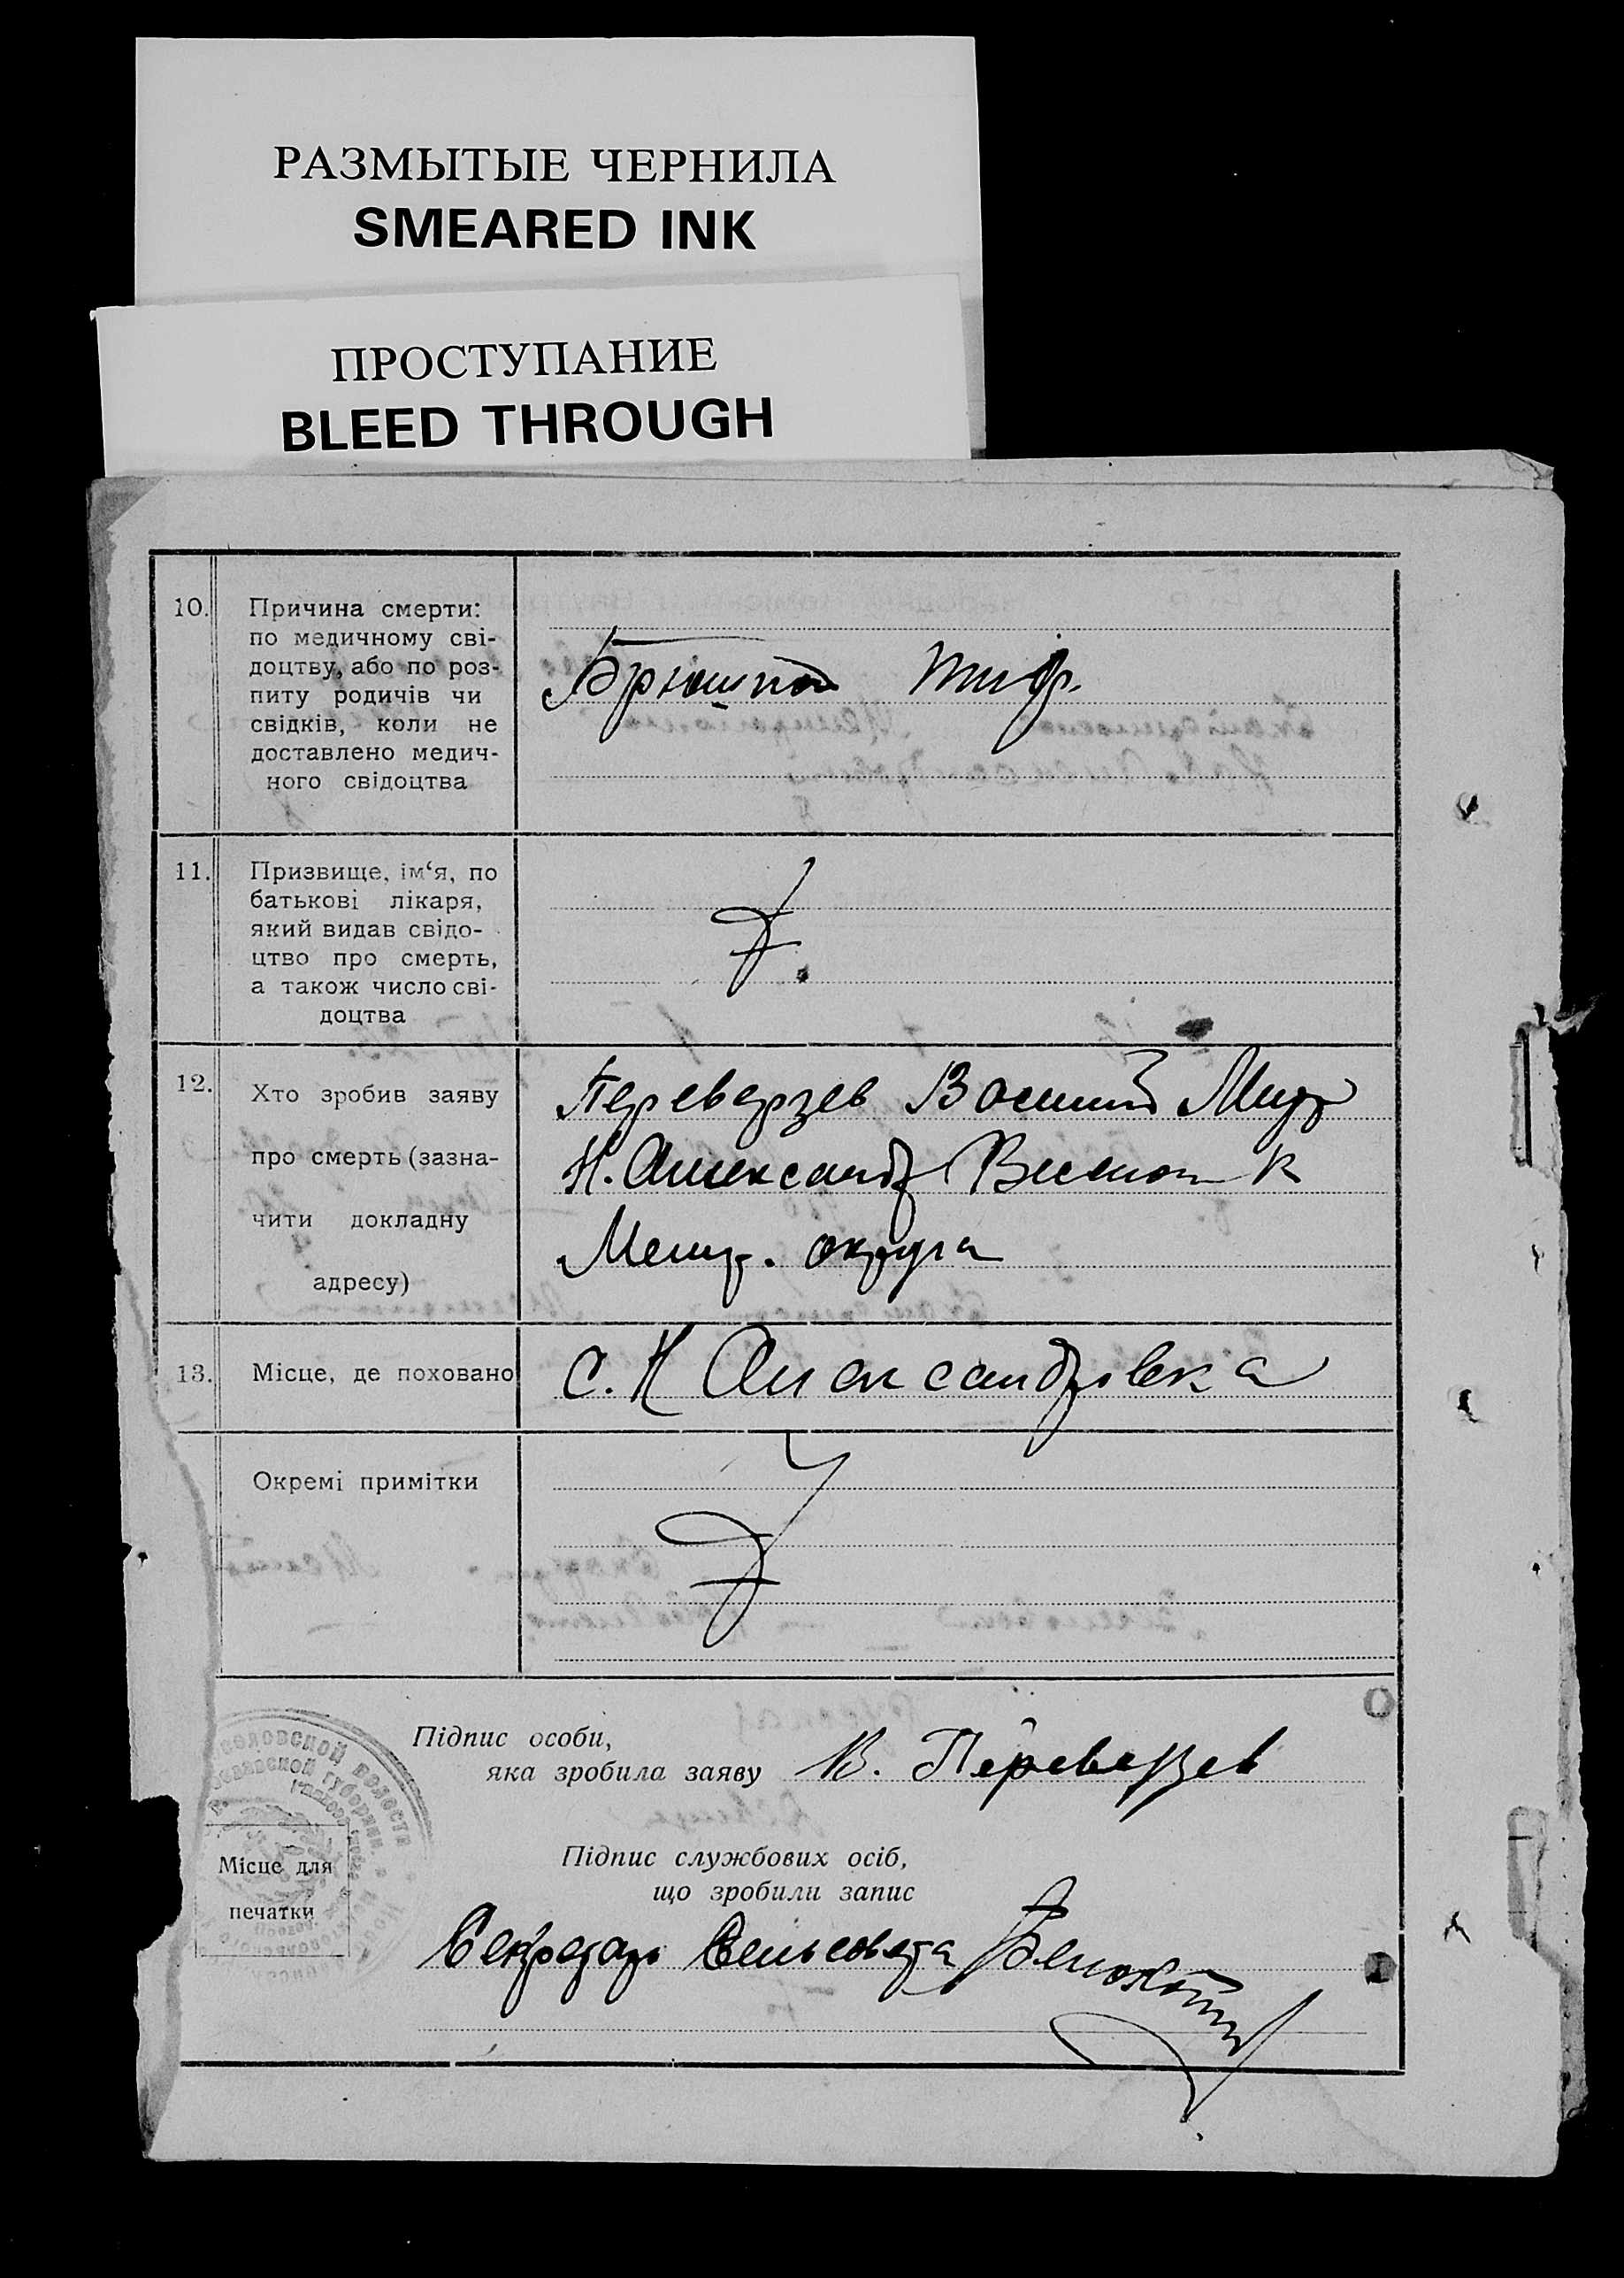 РАЗМЫТЫЕ ЧЕРНИЛА
SMEARED INK
ПРОСТУПАНИЕ
BLEED THROUGH
10.
Причина смерти:
по медичному сві-
доцтву, або по роз-
питу родичів чи
свідків, коли не
доставлено медич-
ного свідоцтва
Брюшной тиф.
11.
Призвище, ім‘я, по
батькові лікаря,
який видав свідо-
цтво про смерть,
а також число сві-
доцтва
12.
Хто зробив заяву
про смерть (зазна-
чити докладну
адресу)
Переверзев Василий
Н. Александр
округа
13.
Місце, де поховано
С. Н Александровка
Окремі примітки
Підпис особи,
яка зробила заяву
В. Переверзев
Місце для
печатки
Підпис службових осіб,
що зробили запис
Секретарь Сельсовета